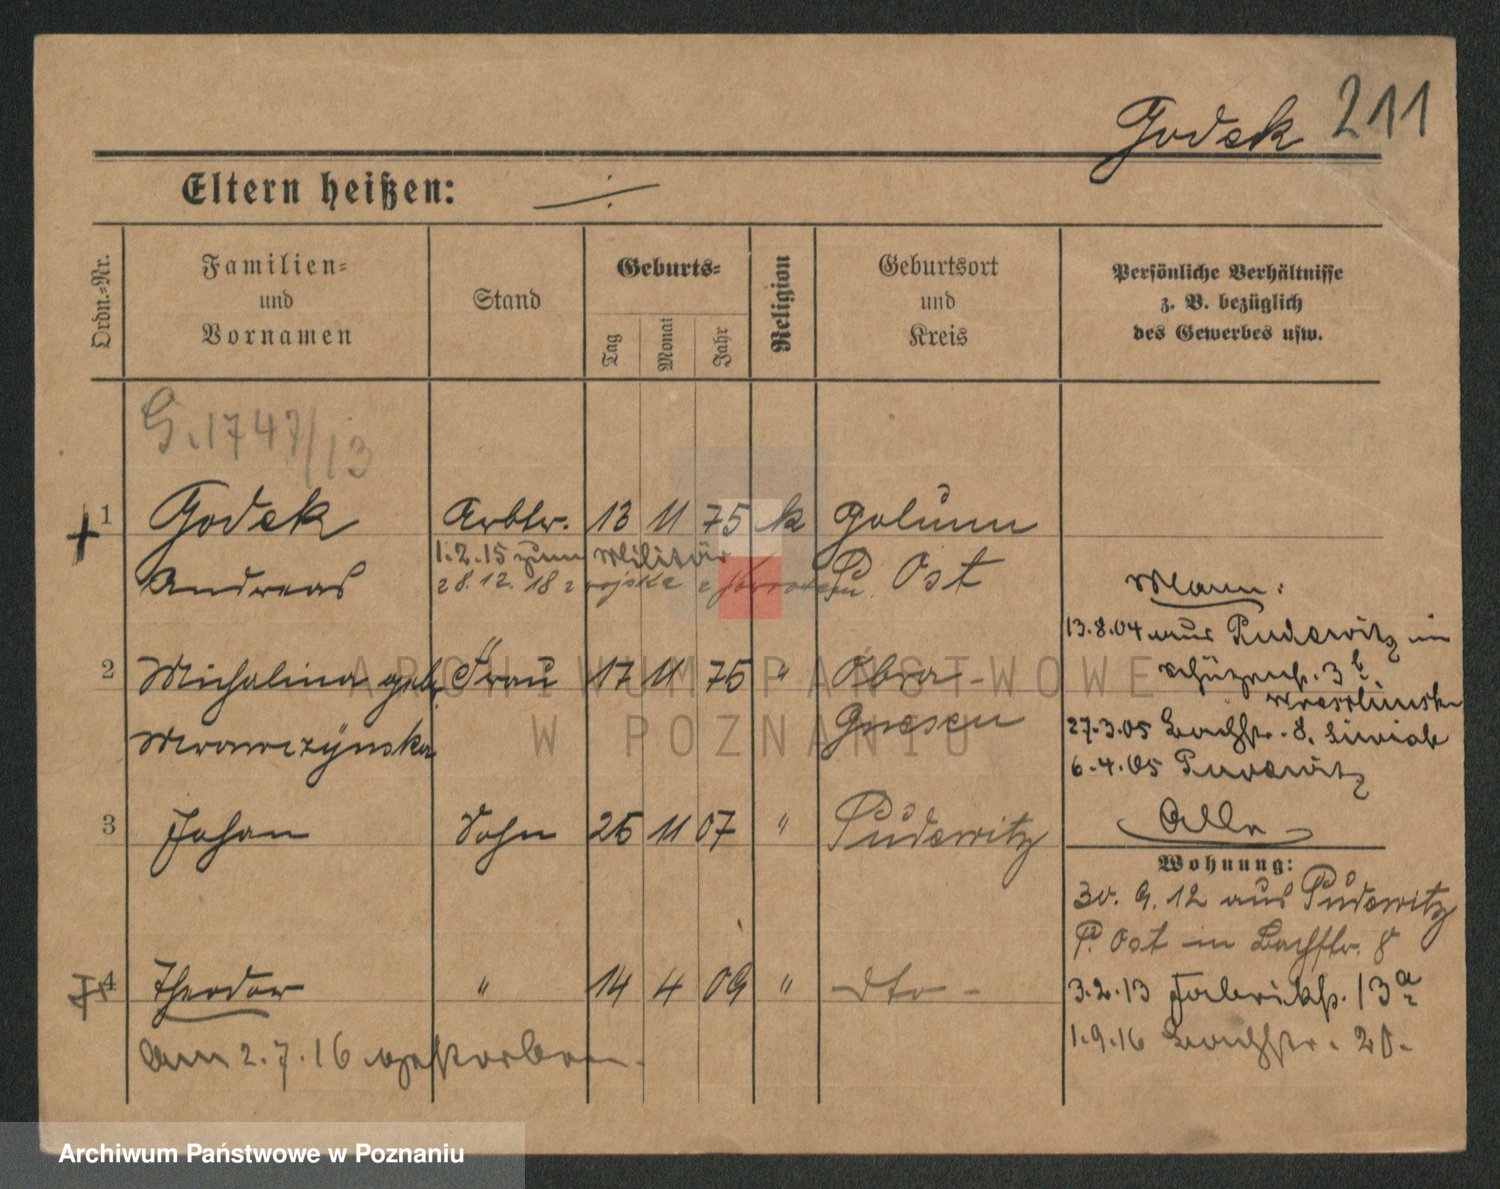 Godek 211
Eltern heißen: ⁒
Ordn.-Nr.
Familien-
und
Vornamen
Stand
Geburts-
Tag
Monat
Jahr
Religion
Geburtsort
und
Kreis
Persönliche Verhältnisse
z. B. bezüglich
des Gewerbes usw.
G. 1747/13
1 Godek Arbtr. 13 11 75 k Golunn
1.2.15 zum Militär
Andreas 28.12.18 z wojska P. Ost
Mann:
13.8.04 aus Pudewitz in
2 Michalina geb. Frau 17 11 75 " Obra-
Schützenstr. 3 b.
Wawrzynska Gnesen
27.3.05 Bachstr. 8.
6.4.05 Pudewitz
3 Johan Sohn 25 11 07 " Pudewitz
Alle
Wohnung:
30. 9. 12 aus Pudewitz
P. Ost in Bachstr. 8
4 Theodor " 14 4 09 " dto -
3.2.13 Fabrikstr. 13 a
am 2.7.16 gestorben.
1.9.16 Bachstr. 20.
ARCHIWUM PAŃSTWOWE
W POZNANIU
Archiwum Państwowe w Poznaniu